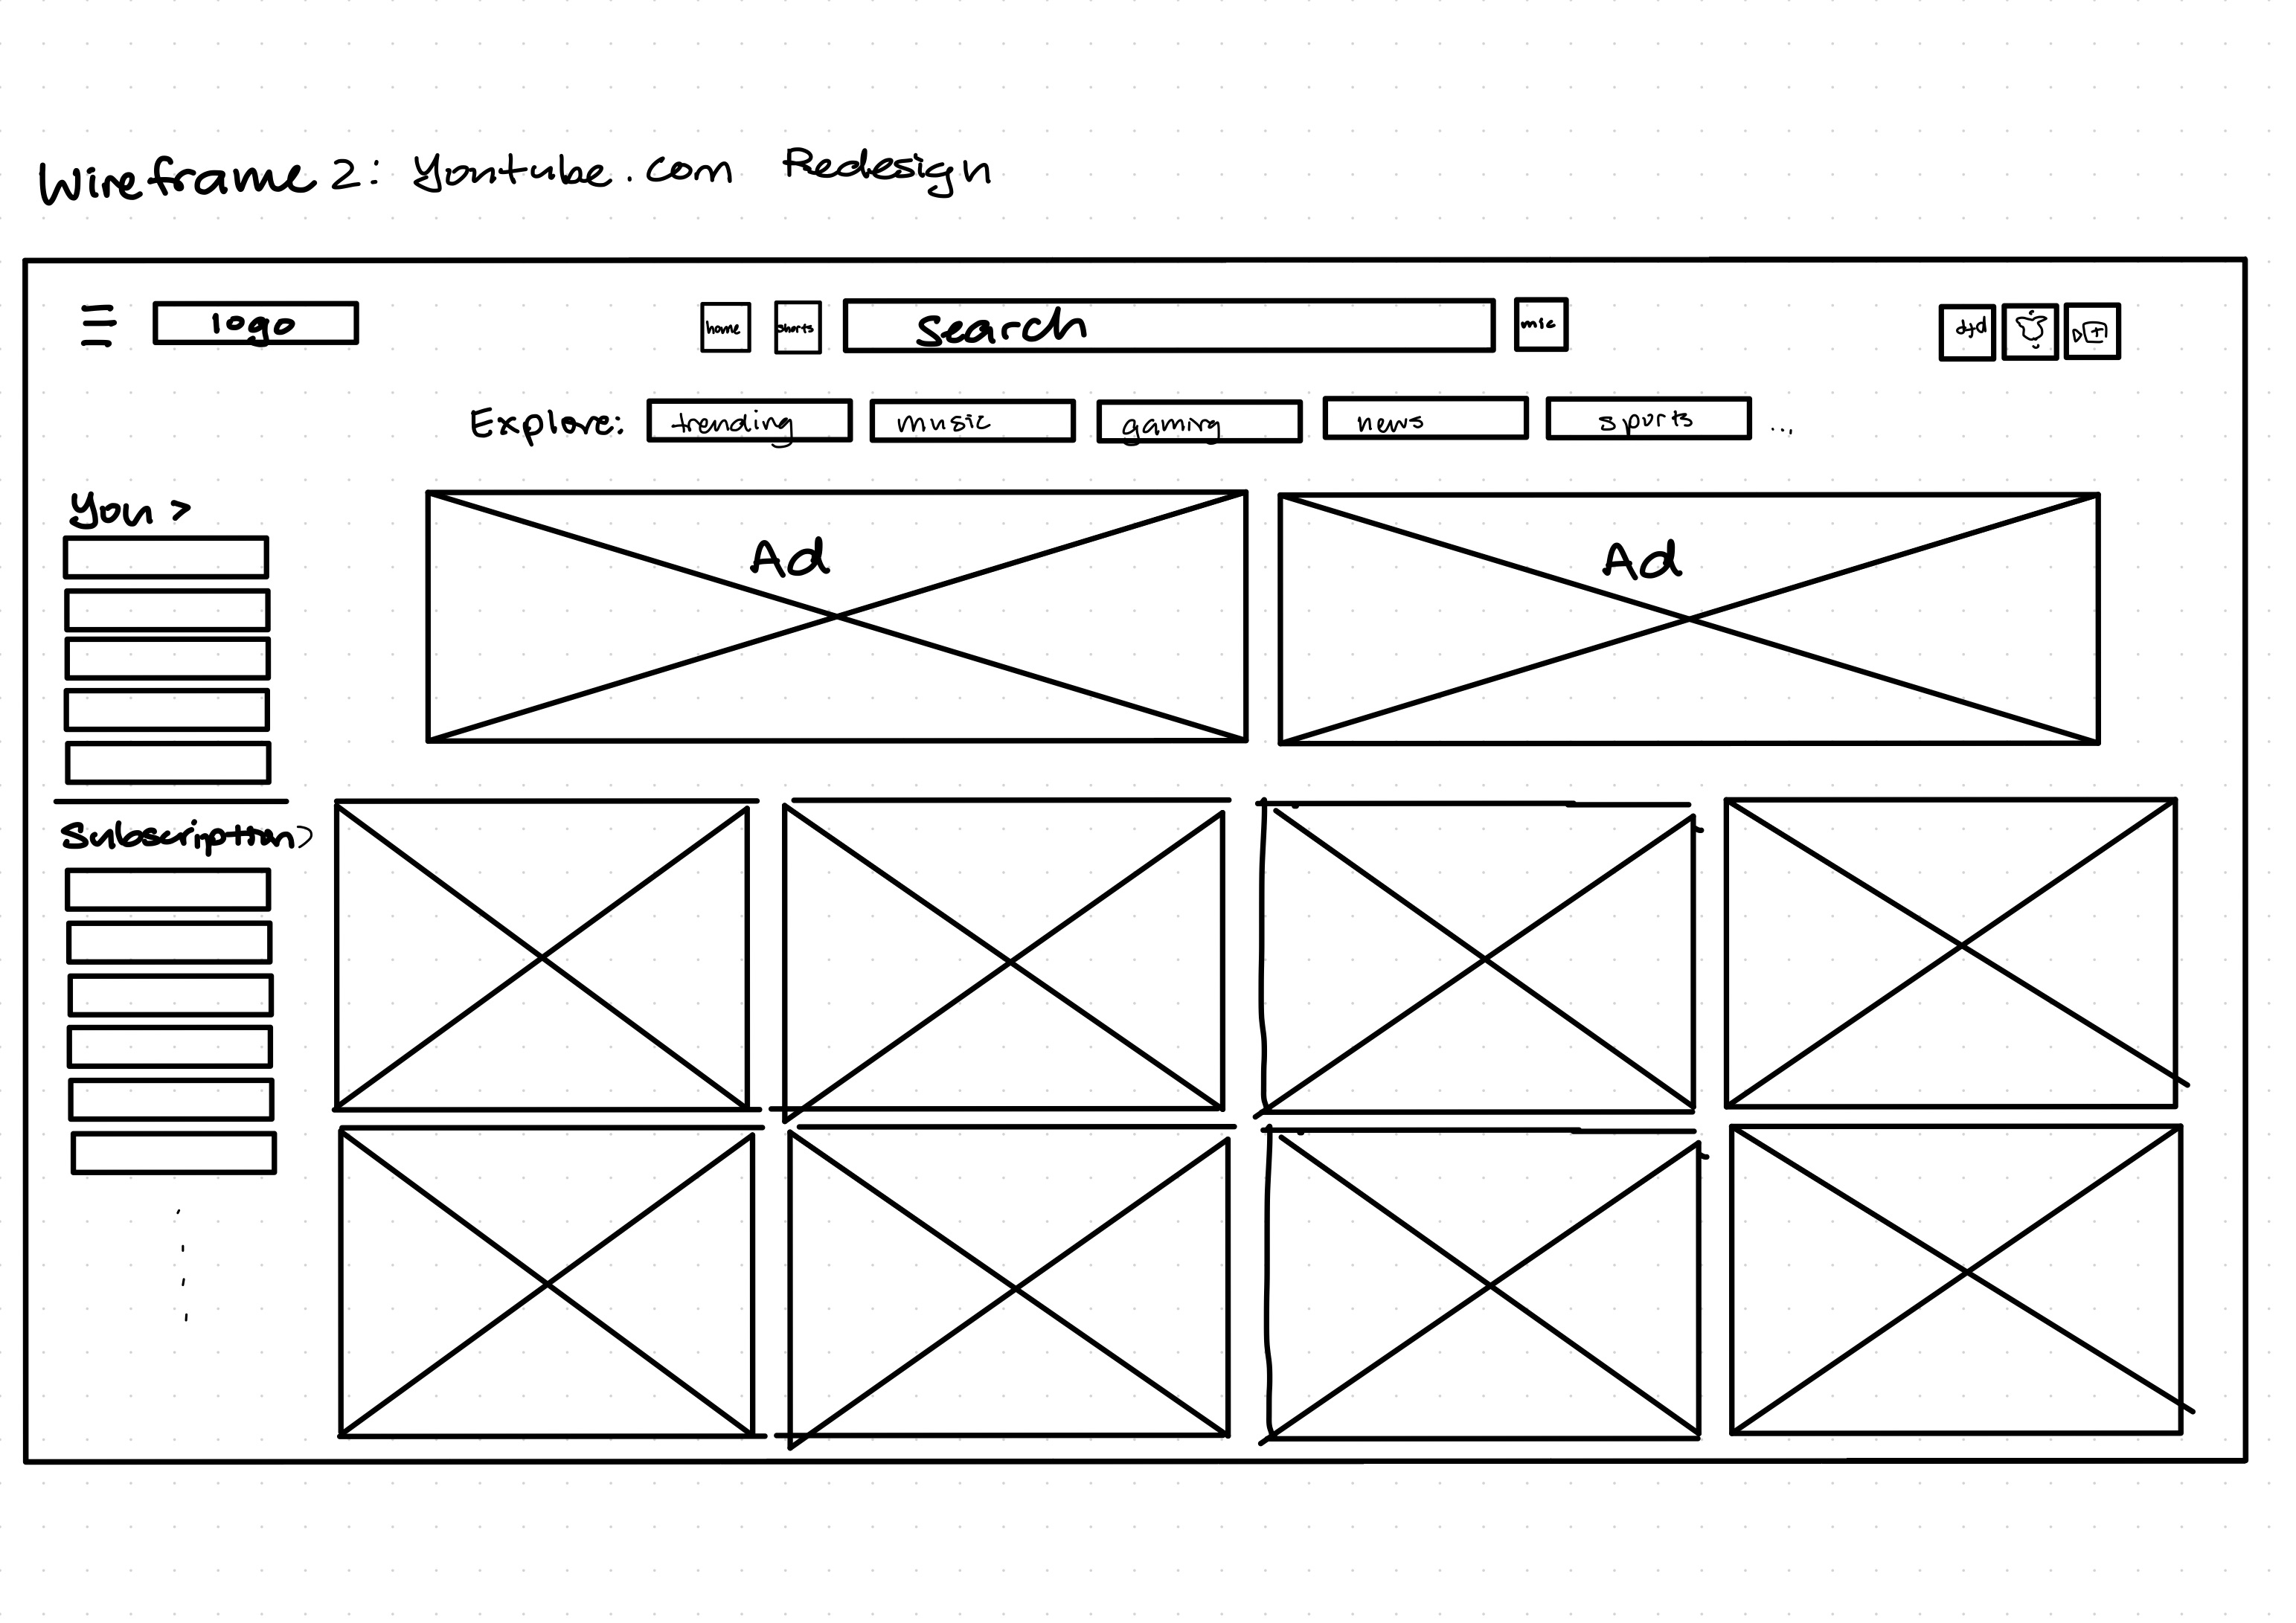 Wireframe 2: Youtube.com Redesign
logo home shorts search mic
Explore: trending music gaming news sports ...
You >
Ad Ad
Subscription >